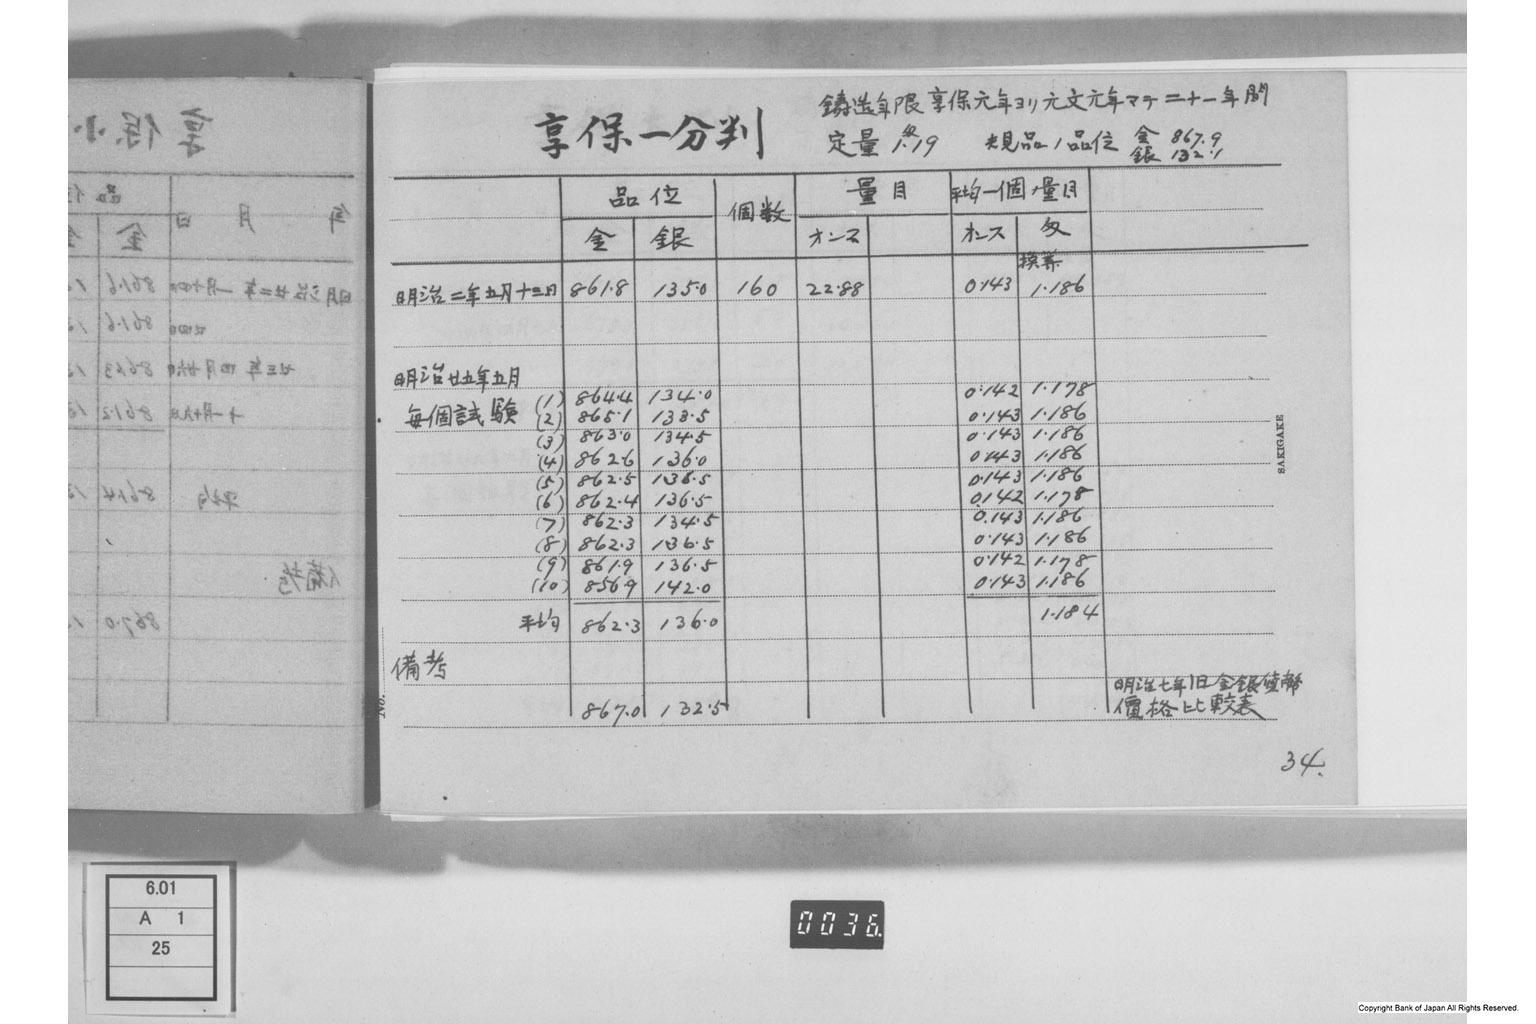 享保一分判
鋳造年限 享保元年ヨリ元文元年マデ二十一年間
定量 匁1.19 規品ノ品位 金 867.9
銀 132.1
品位 個数 量目 平均一個ノ量目
金 銀 オンス オンス 匁
換算
明治二年五月十三日 861.8 135.0 160 22.88 0.143 1.186
明治廿五年五月
毎個試験 (1) 864.4 134.0 0.142 1.178
(2) 865.1 133.5 0.143 1.186
(3) 863.0 134.5 0.143 1.186
(4) 862.6 136.0 0.143 1.186
(5) 862.5 136.5 0.143 1.186
(6) 862.4 136.5 0.142 1.178
(7) 862.3 134.5 0.143 1.186
(8) 862.3 136.5 0.143 1.186
(9) 861.9 136.5 0.142 1.178
(10) 856.9 142.0 0.143 1.186
平均 862.3 136.0 1.184
備考
867.0 132.5 明治七年旧金銀貨幣
價格比較表
34.
SAKIGAKE
No.
6.01
A 1
25
0036.
Copyright Bank of Japan All Rights Reserved.